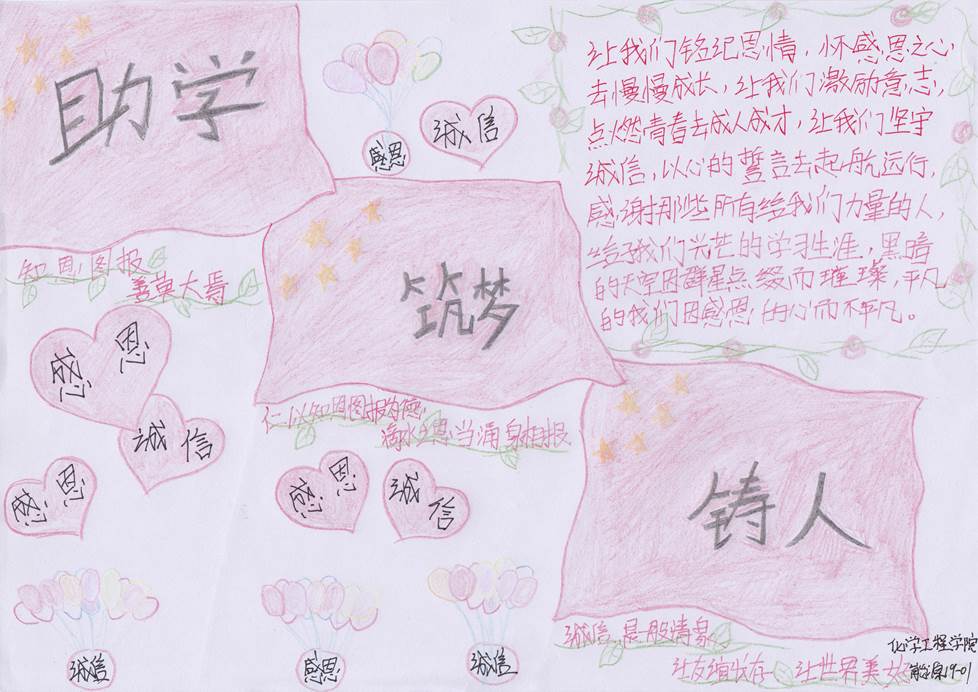 助学
感恩
诚信
让我们铭记恩情，怀感恩之心
去慢慢成长，让我们激励意志，
点燃青春去成人成才，让我们坚守
诚信，以心的誓言去起航远行，
感谢那些所有给我们力量的人，
给予我们光芒的学习生涯，黑暗
的天空因群星点缀而璀璨，平凡
的我们因感恩的心而不平凡。
知恩图报
善莫大焉
筑梦
感恩
诚信
感恩
仁以知恩图报为德
滴水之恩当涌泉相报
感恩
诚信
铸人
诚信
感恩
诚信
诚信
让友谊长存 让世界美好
化学工程学院
19-01